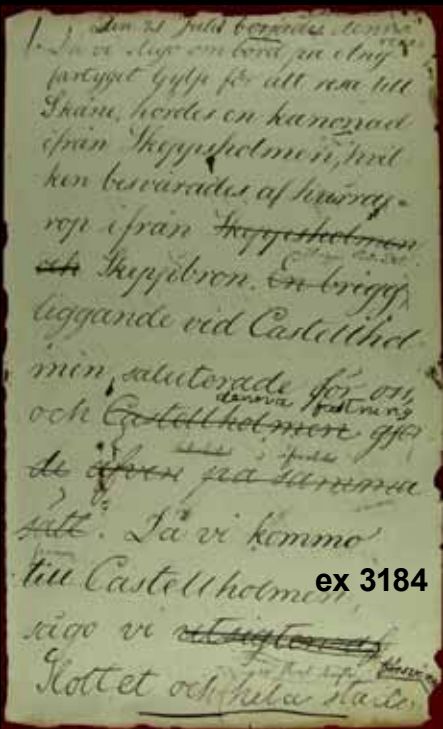 Den 21 Juli började denna
Då vi stego om bord på ång
fartyget Gylfe för att resa till
Skåne, hördes en kanonad
ifrån Skeppsholmen, hvil
ken besvarades af hurra-
rop ifrån Skeppsholmen
och Skeppsbron. En brigg
liggande vid Castellhol
men, saluterade för oss,
denna fästning
och Castellholmen
de äfven på samma
sätt. Då vi kommo
till Castellholmen,
ex 3184
sågo vi utsigten af
Slottet och hela